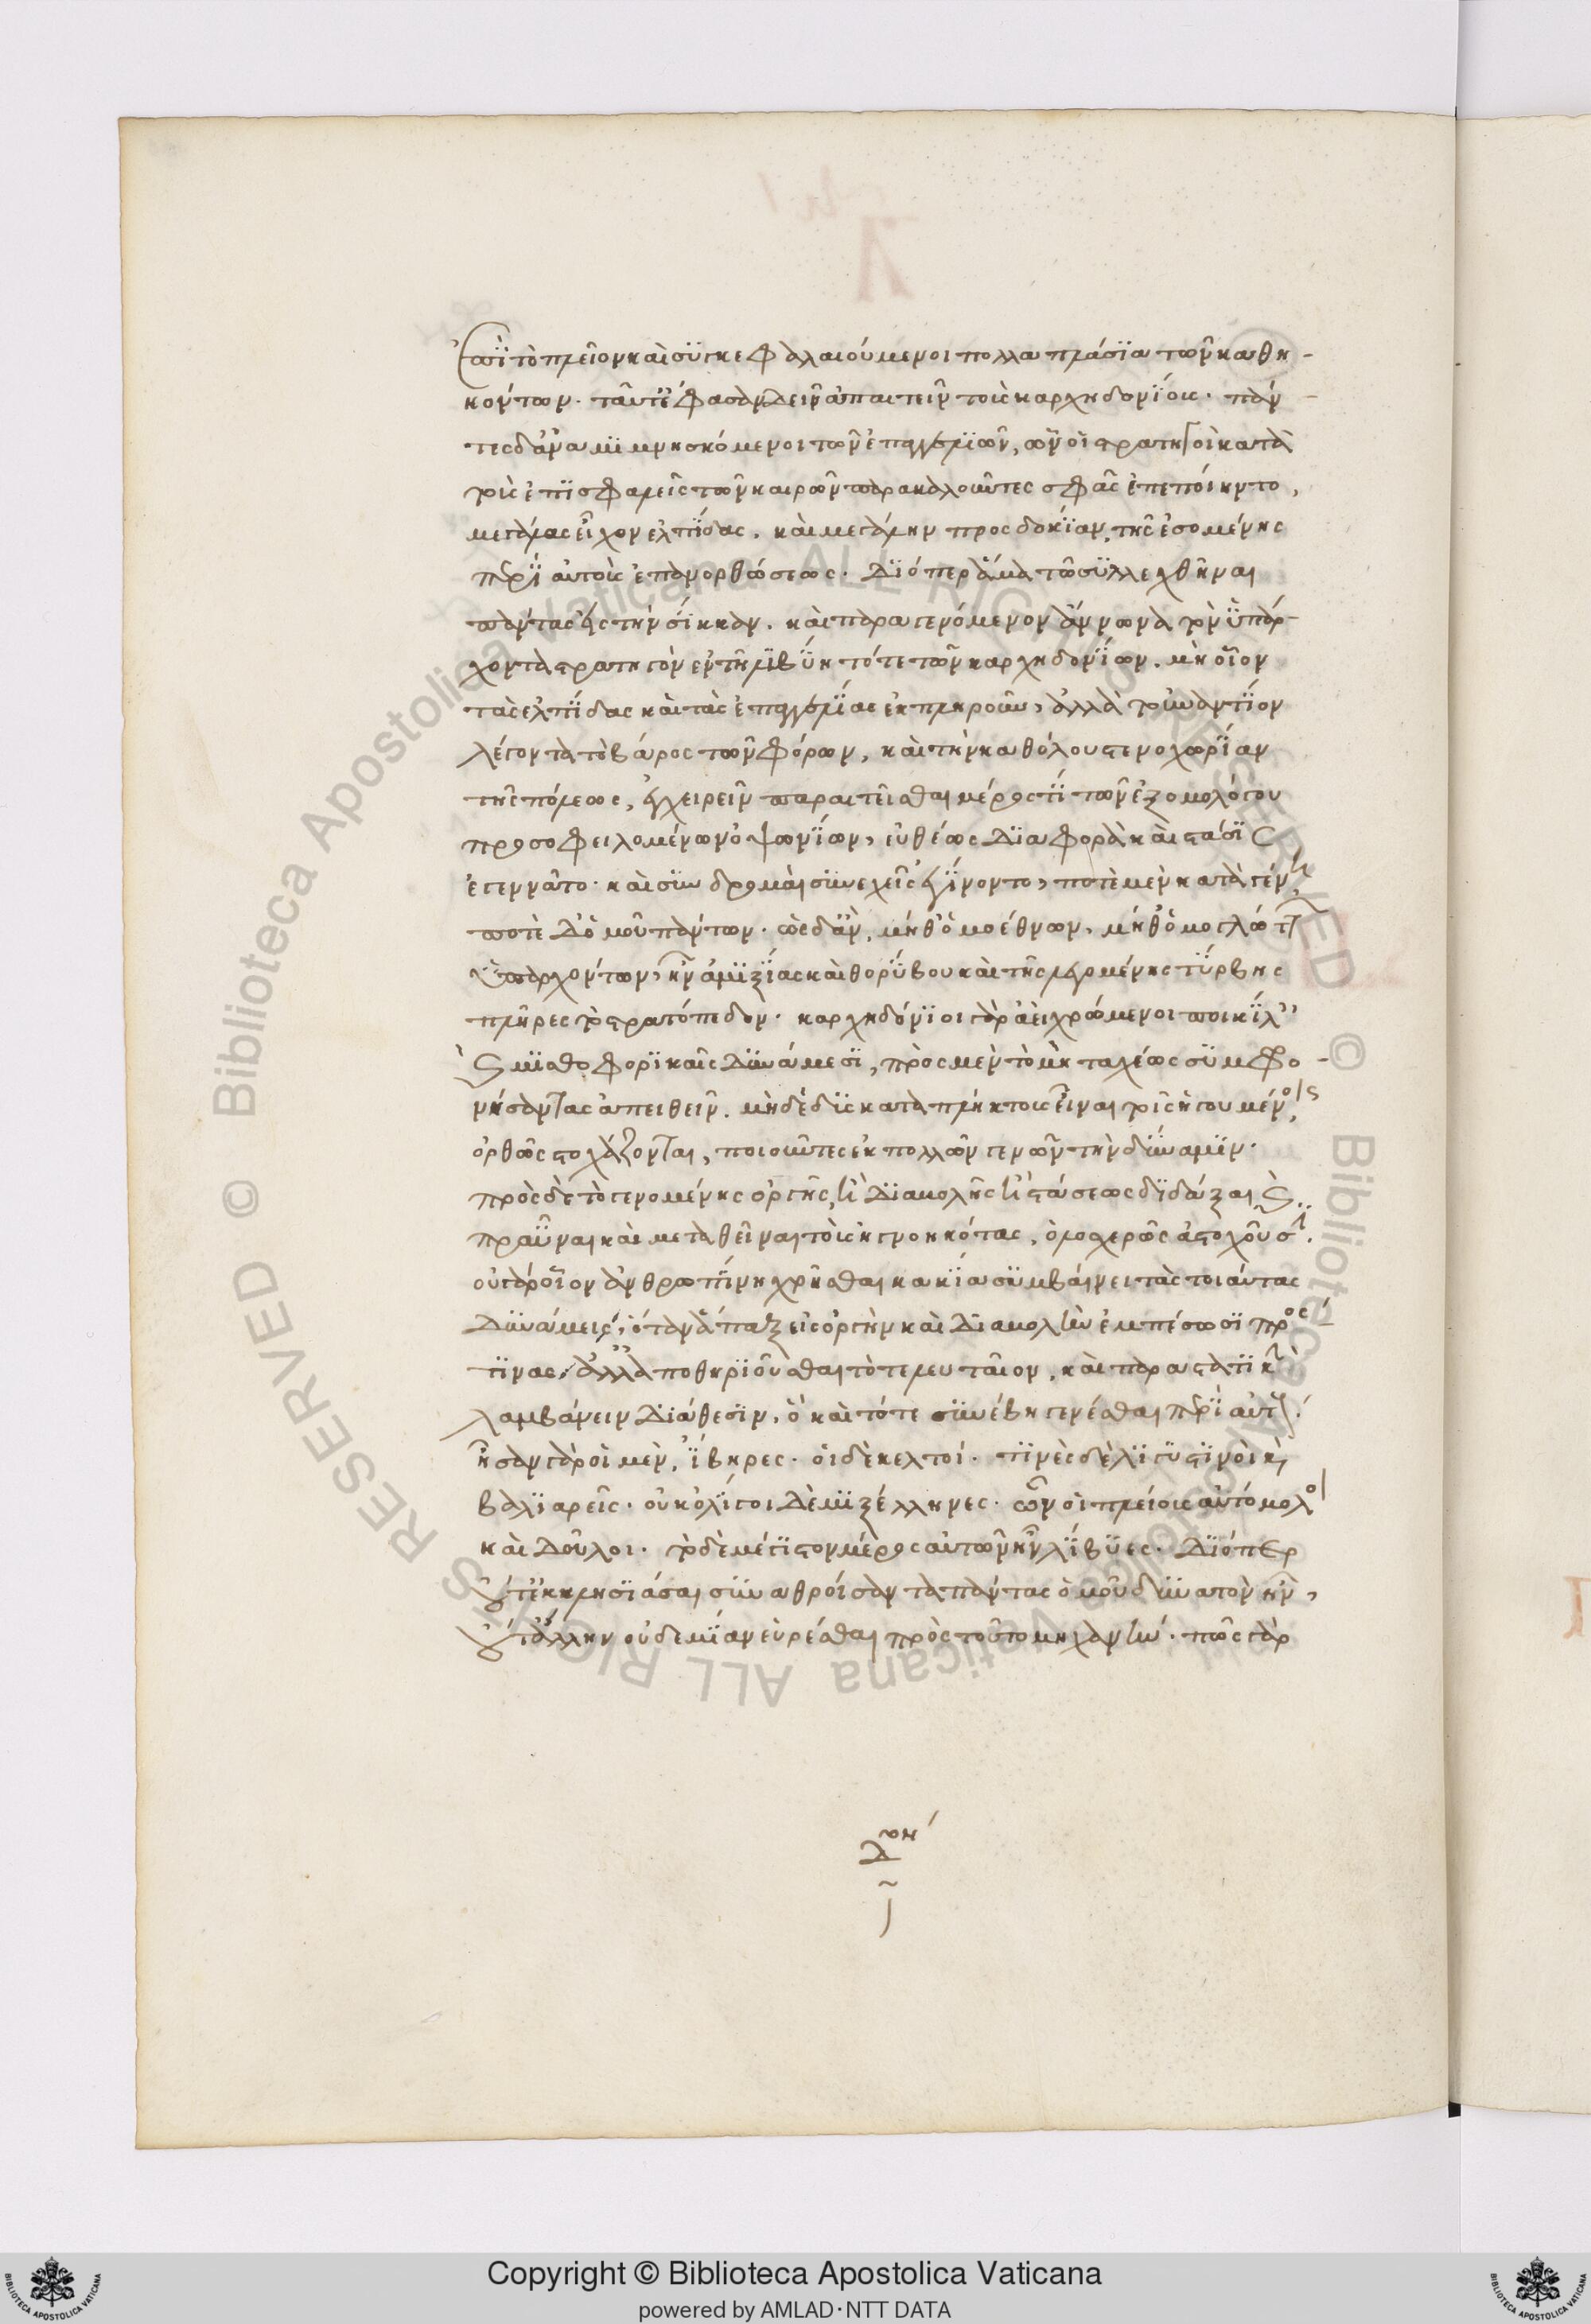 ἐπὶ τὸ πλεῖον καὶ συγκεφαλαιούμενοι πολλαπλάσια τῶν καθη-
κόντων. ταῦτ' ἔφασαν δεῖν ἀπαιτεῖν τοὺς καρχηδονίους. πάν-
τες δ' ἀναμιμνησκόμενοι τῶν ἐπαγγελιῶν, ὧν οἱ στρατηγοὶ κατὰ
τοὺς ἐπισφαλεῖς τῶν καιρῶν παρακαλοῦντες σφᾶς ἐπεποίηντο,
μεγάλας εἶχον ἐλπίδας. καὶ μεγάλην προσδοκίαν, τῆς ἐσομένης
περὶ αὐτοὺς ἐπανορθώσεως. Διόπερ ἅμα τῶ συλλεχθῆναι
πάντας εἰς τὴν σίκκαν. καὶ παραγενόμενον ἄννωνα τὸν ὑπάρ-
χοντα στρατηγὸν ἐν τῆ λιβύη τότε τῶν καρχηδονίων. μὴ οἷον
τὰς ἐλπίδας καὶ τὰς ἐπαγγελίας ἐκπληροῦν, ἀλλὰ τοὐναντίον
λέγοντα τὸ βάρος τῶν φόρων, καὶ τὴν καθόλου στενοχωρίαν
τῆς πόλεως, ἐγχειρεῖν παραιτεῖσθαι μέρος τί τῶν ἐξ ὁμολόγου
προσοφειλομένων ὀψωνίων, εὐθέως διαφορὰ καὶ στάσις
ἐγεννᾶτο. καὶ συνδρομαὶ συνεχεῖς ἐγίνοντο, ποτὲ μὲν κατὰ γένη,
ποτὲ δ' ὁμοῦ πάντων. ὡς δ' ἂν, μήθ' ὁμοέθνων, μήθ' ὁμογλώττων
ὑπαρχόντων, ἦν ἀμιξίας καὶ θορύβου καὶ τῆς λεγομένης τύρβης
πλῆρες τὸ στρατόπεδον. καρχηδόνιοι γὰρ ἀεὶ χρώμενοι ποικίλαις
καὶ μισθοφορικαῖς δυνάμεσι, πρὸς μὲν τὸ μὴ ταχέως συμφρο-
νήσαντας ἀπειθεῖν. μηδὲ δυσκαταπλήκτους εἶναι τοῖς ἡγουμένοις,
ὀρθῶς στοχάζονται, ποιοῦντες ἐκ πολλῶν γενῶν τὴν δύναμιν.
πρὸς δὲ τὸ γενομένης ὀργῆς, ἢ διαβολῆς ἢ στάσεως διδάξαι καὶ
πραῧναι καὶ μεταθεῖναι τοὺς ἠγνοηκότας, ὁλοσχερῶς ἀστοχοῦσι.
οὐ γὰρ οἷον ἀνθρωπίνη χρῆσθαι κακία συμβαίνει τὰς τοιαύτας
δυνάμεις, ὅταν ἅπαξ εἰς ὀργὴν καὶ διαβολὴν ἐμπέσωσι πρὸς
τινας, ἀλλ' ἀποθηριοῦσθαι τὸ τελευταῖον, καὶ παραστατικὴν
λαμβάνειν διάθεσιν, ὃ καὶ τότε συνέβη γενέσθαι περὶ αὐτούς.
ἦσαν γὰρ οἱ μὲν, ἴβηρες. οἱ δὲ κελτοί. τινὲς δὲ λιγυστῖνοι καὶ
βαλιαρεῖς. οὐκ ὀλίγοι δὲ μιξέλληνες. ὧν οἱ πλείους αὐτόμολοι
καὶ δοῦλοι. τὸ δὲ μέγιστον μέρος αὐτῶν ἦν λίβυες. Διόπερ
οὔτ' ἐκκλησιάσαι συναθροίσαντα πάντας ὁμοῦ δυνατὸν ἦν,
οὔτ' ἄλλην οὐδεμίαν εὑρέσθαι πρὸς τοῦτο μηχανὴν. πῶς γὰρ